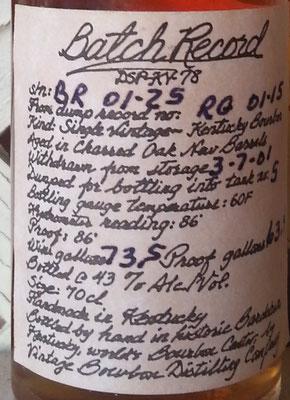 Batch Record
DSP-KY-78
s/n: BR 01-25
From dump record no: RG 01-15
Kind: Single Vintage Kentucky Bourbon
Aged in Charred Oak New Barrels
Withdrawn from storage 3-7-01
Dumped for bottling into tank no 5
Bottling gauge temperature: 60F
Hydrometer reading: 86
Proof: 86°
Wine gallons 73,5 Proof gallons 63,
Bottled @ 43 % Alc/Vol.
Size: 70cl
Handmade in Kentucky
Bottled by hand in historic Bardstown
Kentucky, world's Bourbon Center, by
Vintage Bourbon Distilling Company